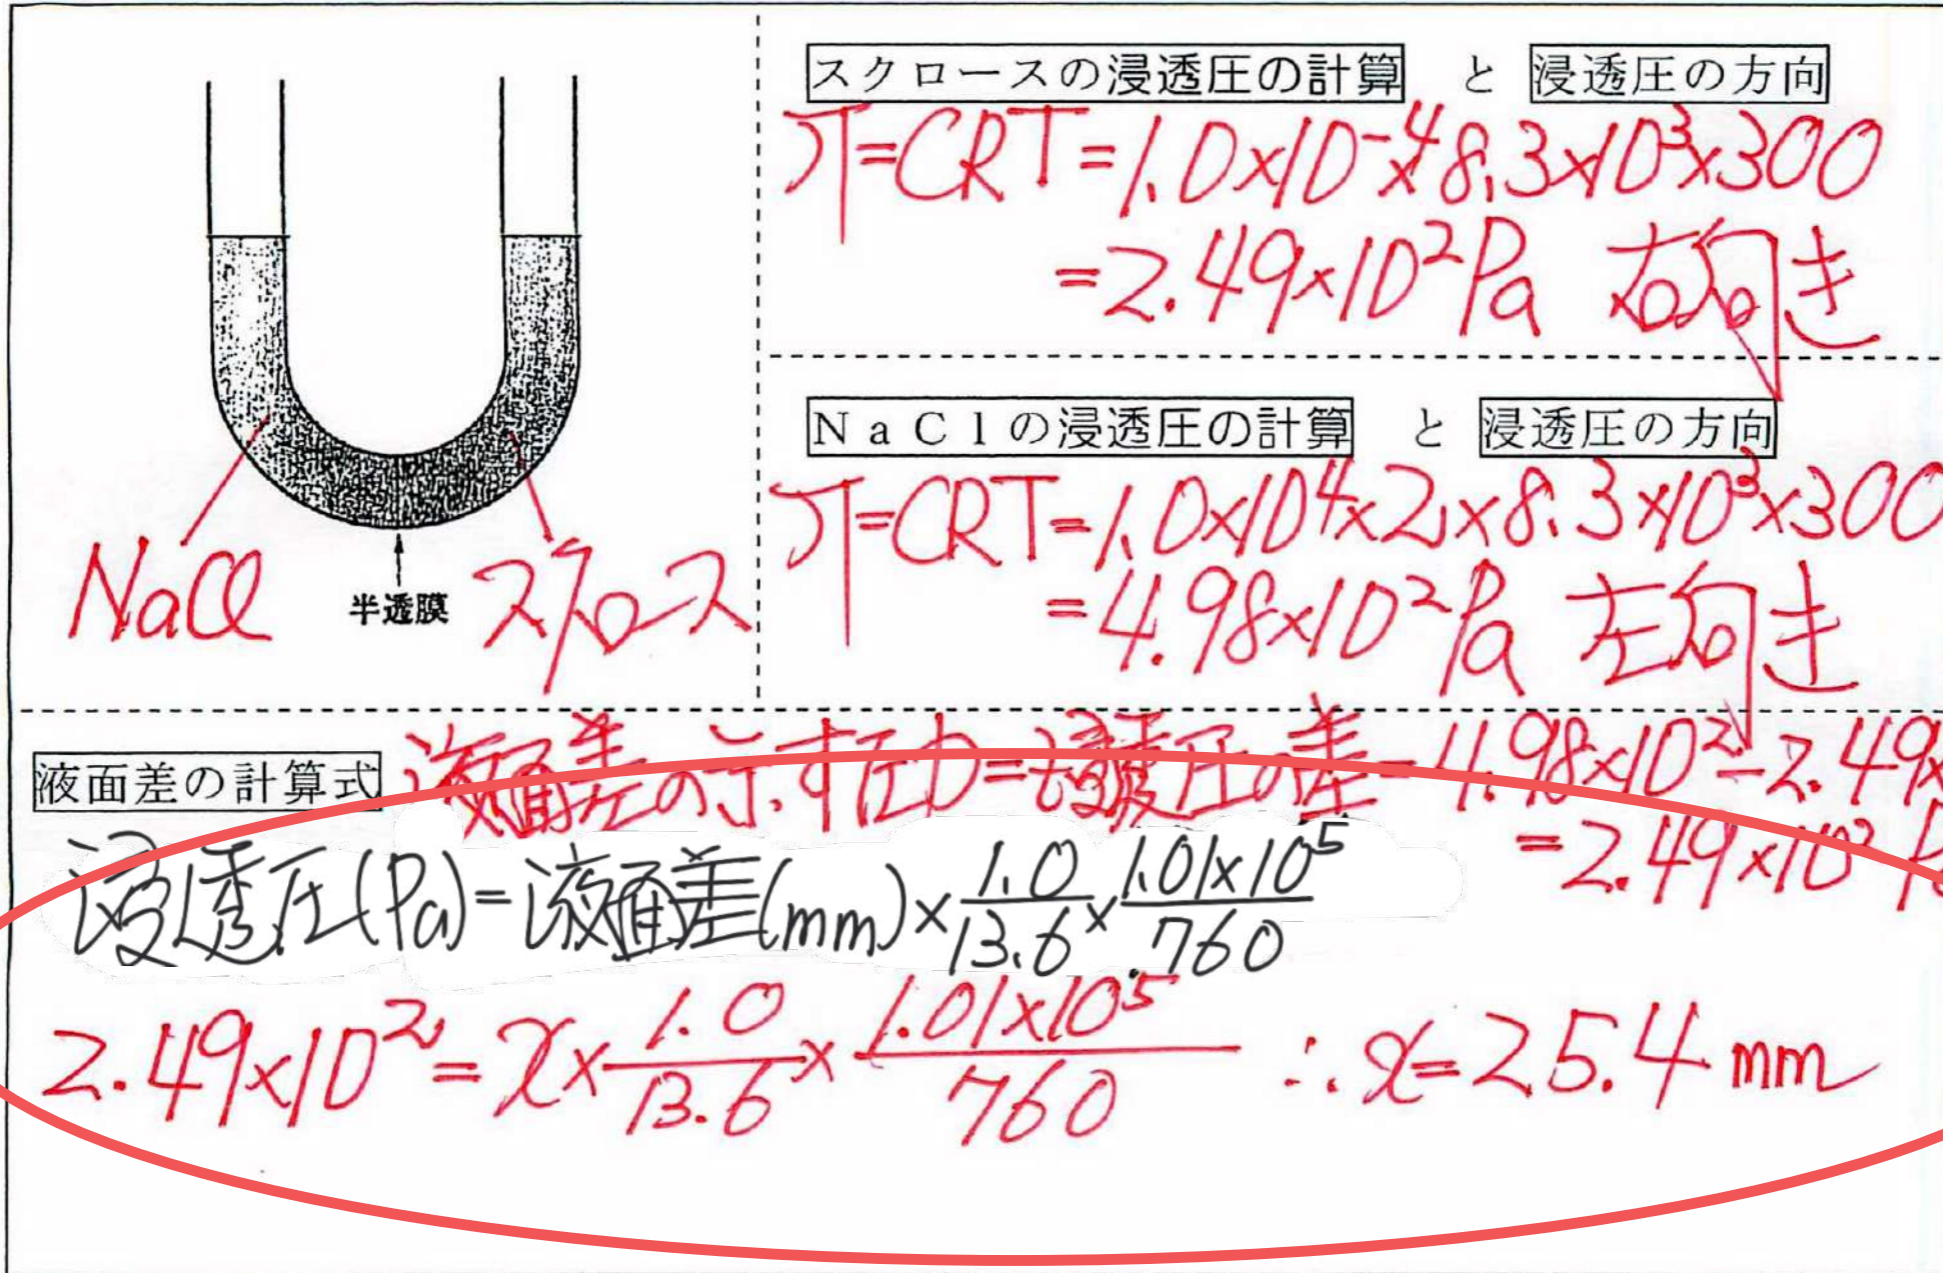 スクロースの浸透圧の計算 と 浸透圧の方向
π=CRT=1.0×10⁻⁴×8.3×10³×300
=2.49×10²Pa 右向き
NaClの浸透圧の計算 と 浸透圧の方向
π=CRT=1.0×10⁴×2×8.3×10³×300
=4.98×10²Pa 左向き
NaCl
半透膜
スクロース
液面差の計算式 液面差の示す圧力=浸透圧の差=4.98×10²-2.49×
=2.49×10² P
浸透圧(Pa)=液面差(mm)×1.0/13.6×1.01×10⁵/760
2.49×10²=x×1.0/13.6×1.01×10⁵/760 ∴x=25.4mm